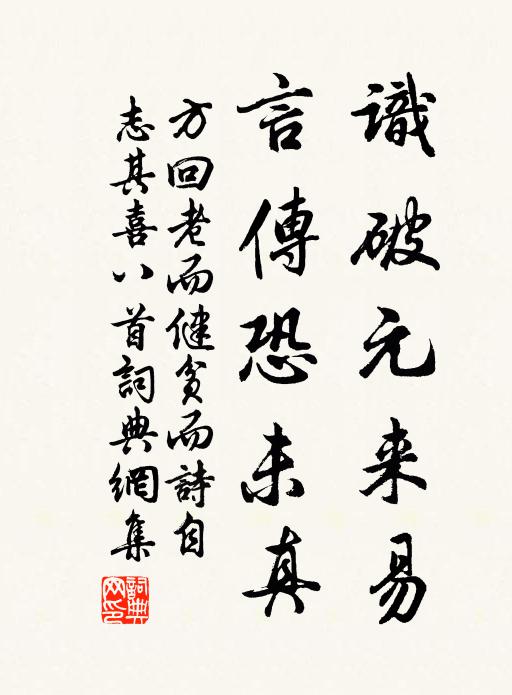 識破元来易
言傳恐未真
方回老而健貧而詩自
志其喜八首詞典網集
詞典网印